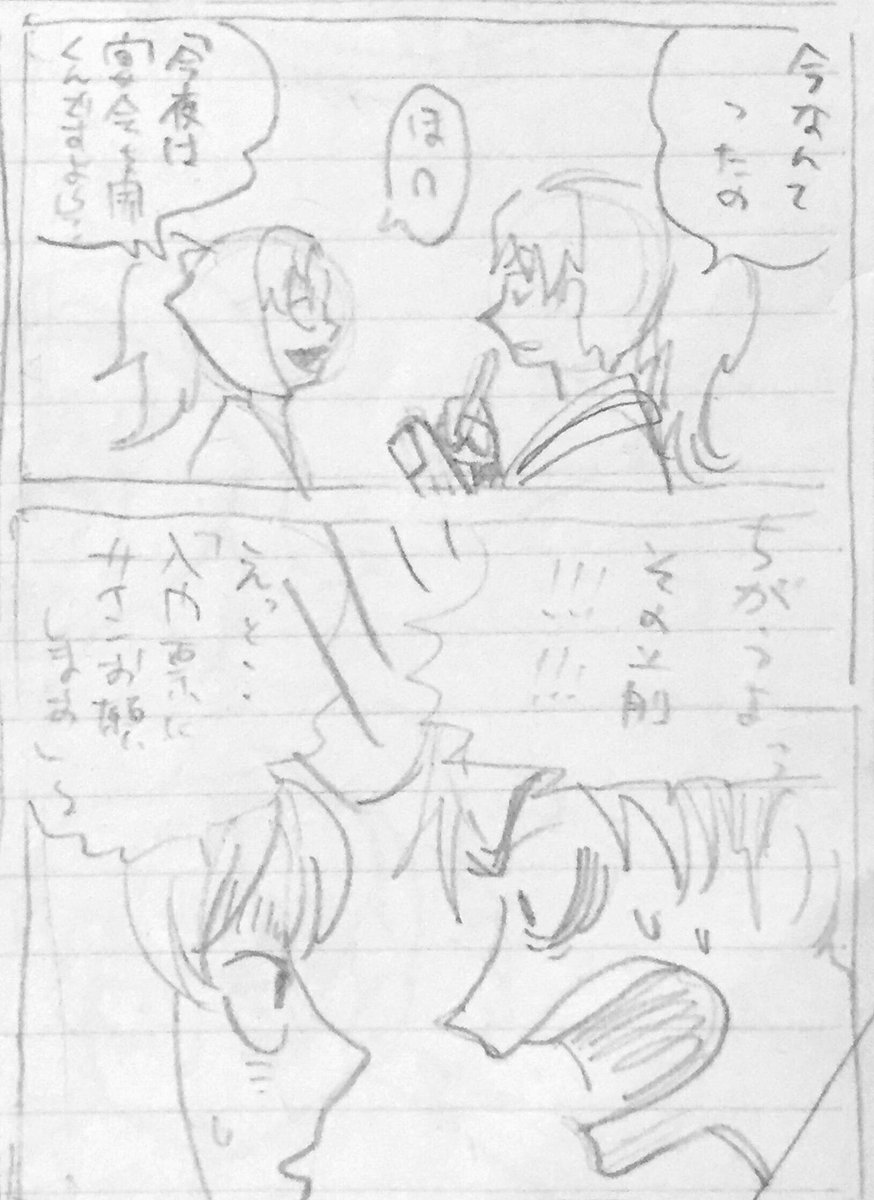 今なんて
ったの
ほっ
「今夜は
宴会を開
くんですよ」
ちがうよっ
その上前
!!! !!!
えっと・・
「入内票に
サインお願い
しまあ〜